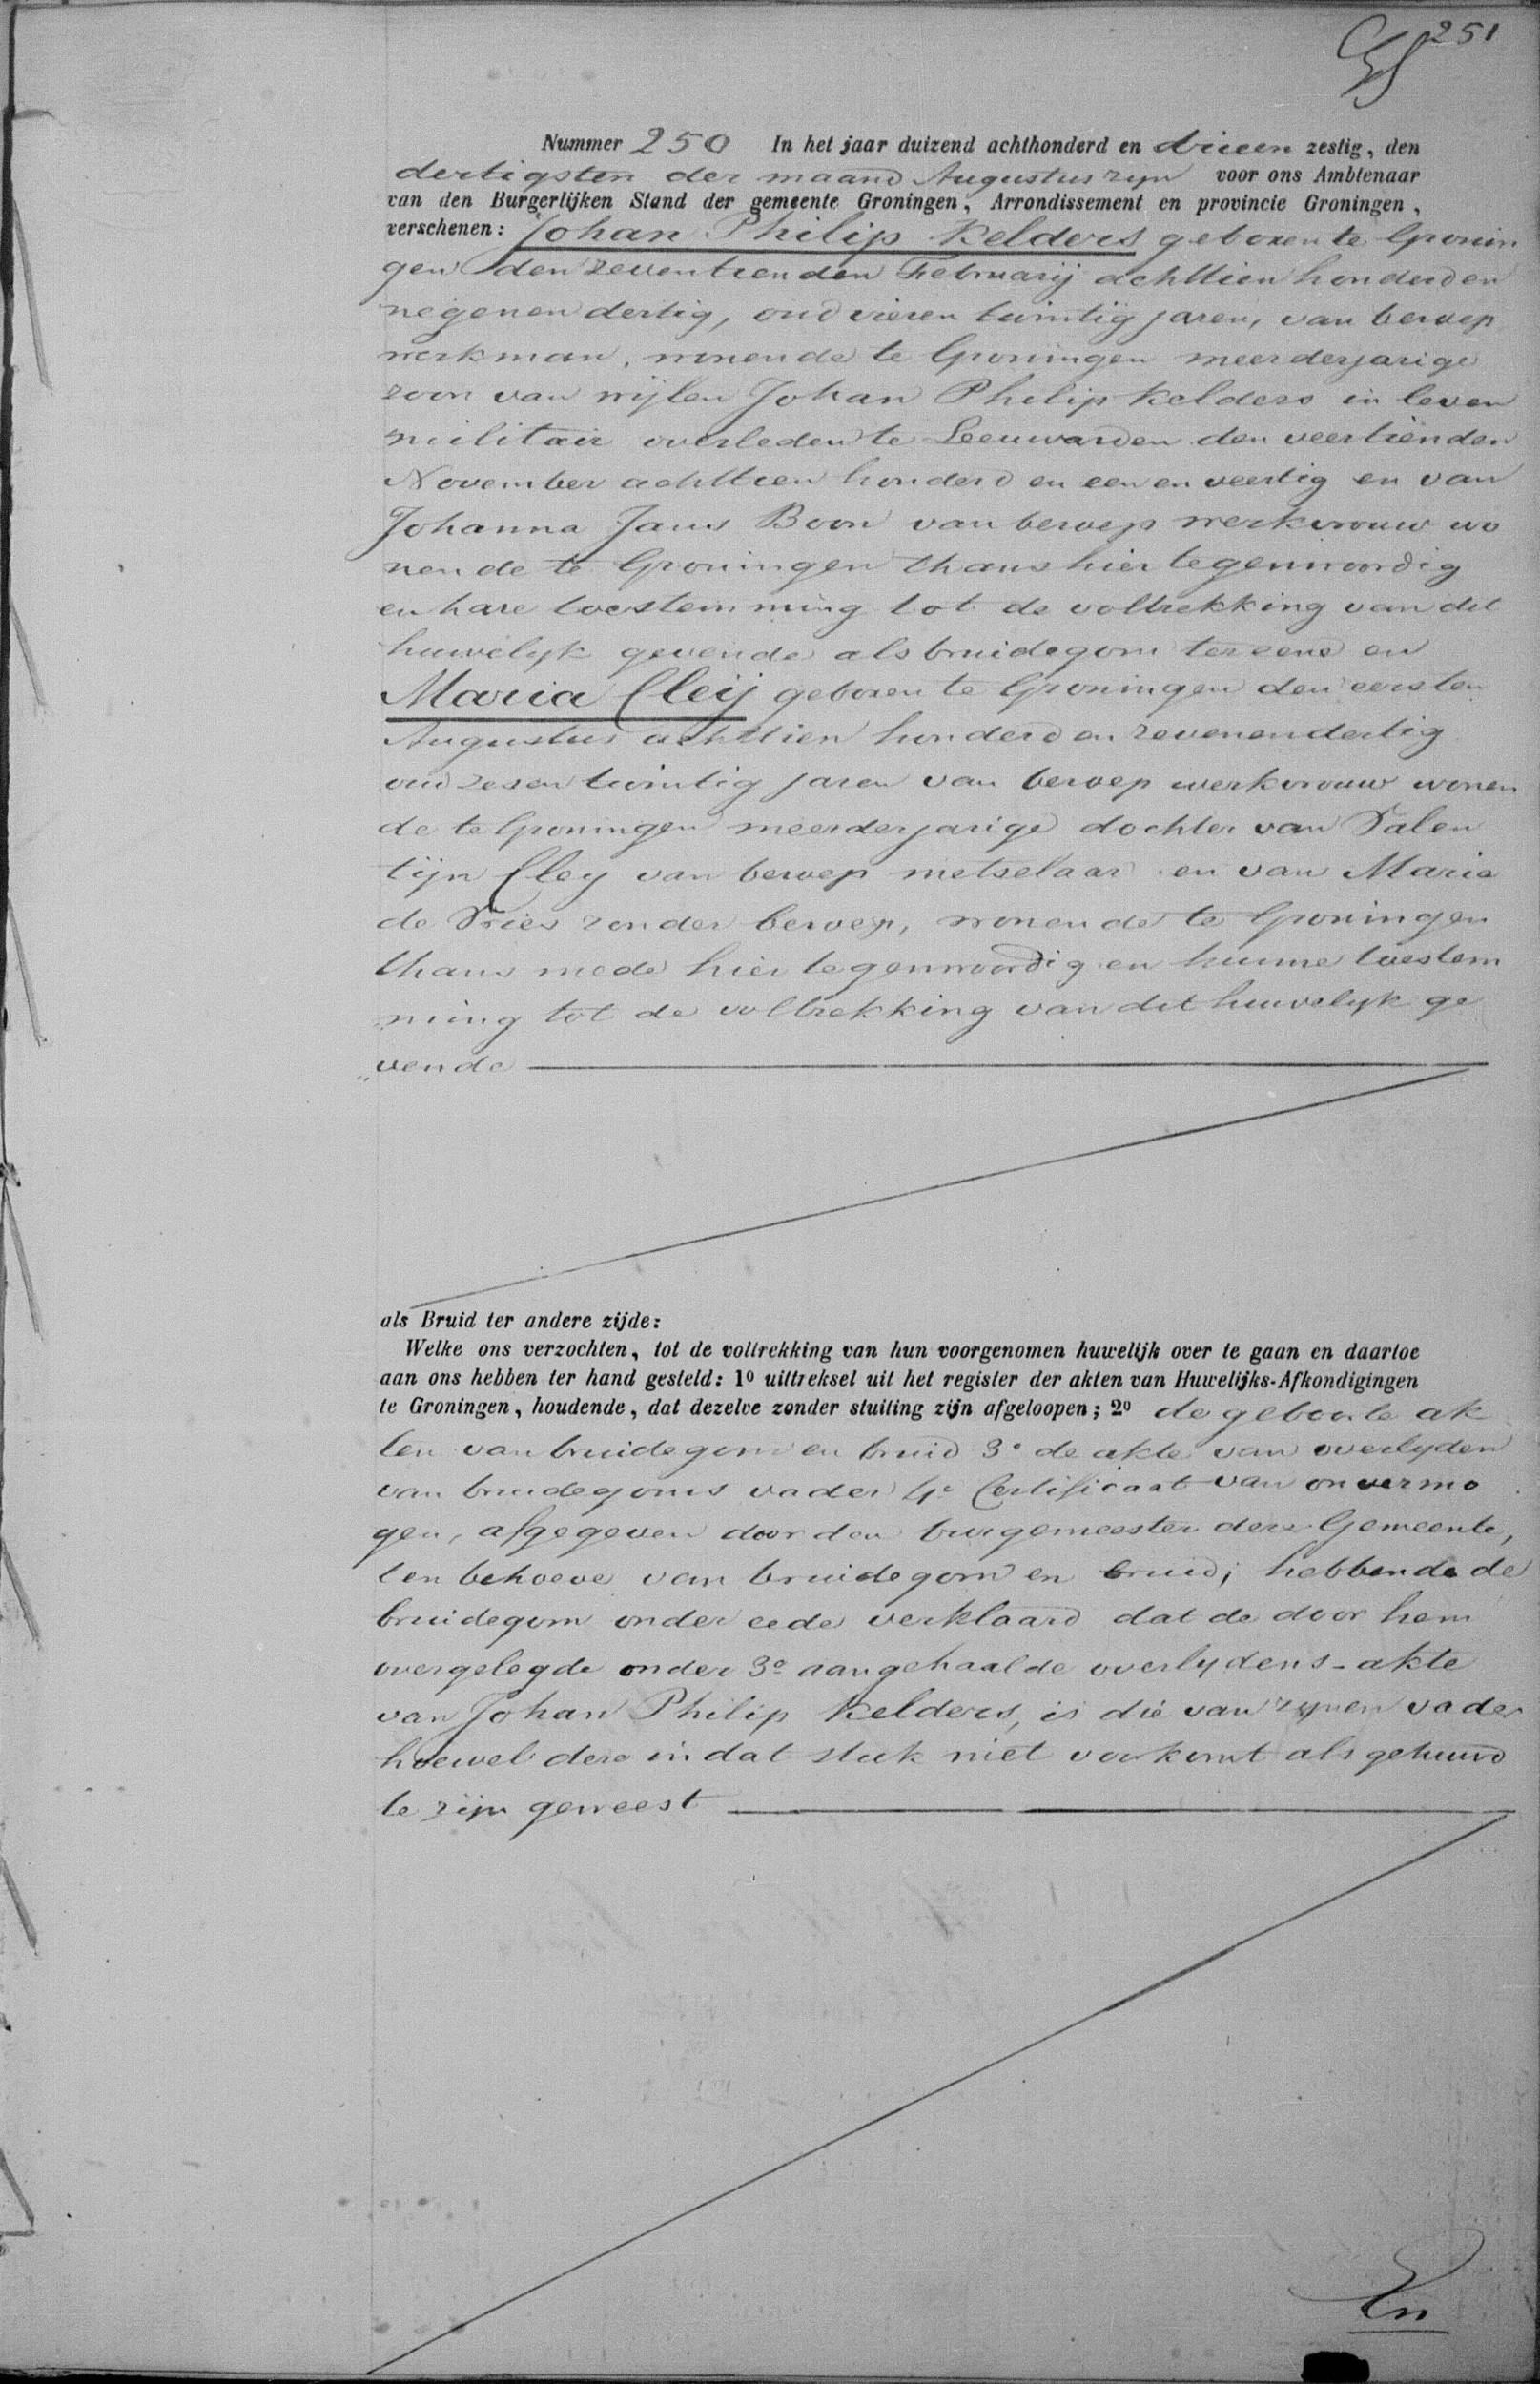 251
Nummer 250 In het jaar duizend achthonderd en drieen zestig, den
dertigsten der maand Augustus zijn voor ons Ambtenaar
van den Burgerlijken Stand der gemeente Groningen, Arrondissement en provincie Groningen,
verschenen: Johan Philip Kelders geboren te Gronin
gen den zeventienden Februarij achttien honderd en
negenen dertig, oud vieren twintig jaren, van beroep
werkman, wonende te Groningen meerderjarige
zoon van wijlen Johan Philip Kelders in leven
militair overleden te Leeuwarden den veertienden
November achttien honderd en een en veertig en van
Johanna Jans Boon van beroep werkvrouw wo
nende te Groningen thans hier tegenwoordig
en hare toestemming tot de voltrekking van dit
huwelijk gevende als bruidegom ter eene en
Maria Cleij geboren te Groningen den eersten
Augustus achttien honderd en zevenendertig
oud zesen twintig jaren van beroep werkvrouw wonen
de te Groningen meerderjarige dochter van Valen
tijn Cley van beroep metselaar en van Maria
de Vries zonder beroep, wonende te Groningen
thans mede hier tegenwoordig en hunne toestem
ming tot de voltrekking van dit huwelijk ge
„vende
als Bruid ter andere zijde:
Welke ons verzochten, tot de voltrekking van hun voorgenomen huwelijk over te gaan en daartoe
aan ons hebben ter hand gesteld: 1º uittreksel uit het register der akten van Huwelijks-Afkondigingen
te Groningen, houdende, dat dezelve zonder stuiting zijn afgeloopen; 2º de geboorte ak
ten van bruidegom en bruid 3º de akte van overlyden
van bruidegoms vader 4º Certificaat van onvermo
gen, afgegeven door den burgemeester dezer Gemeente,
ten behoeve van bruidegom en bruid; hebbende de
bruidegom onder eede verklaard dat de door hem
overgelegde onder 3º aangehaalde overlydens-akte
van Johan Philip Kelders, is die van zynen vader
hoewel deze in dat stuk niet voorkomt als gehuwd
te zijn geweest
En